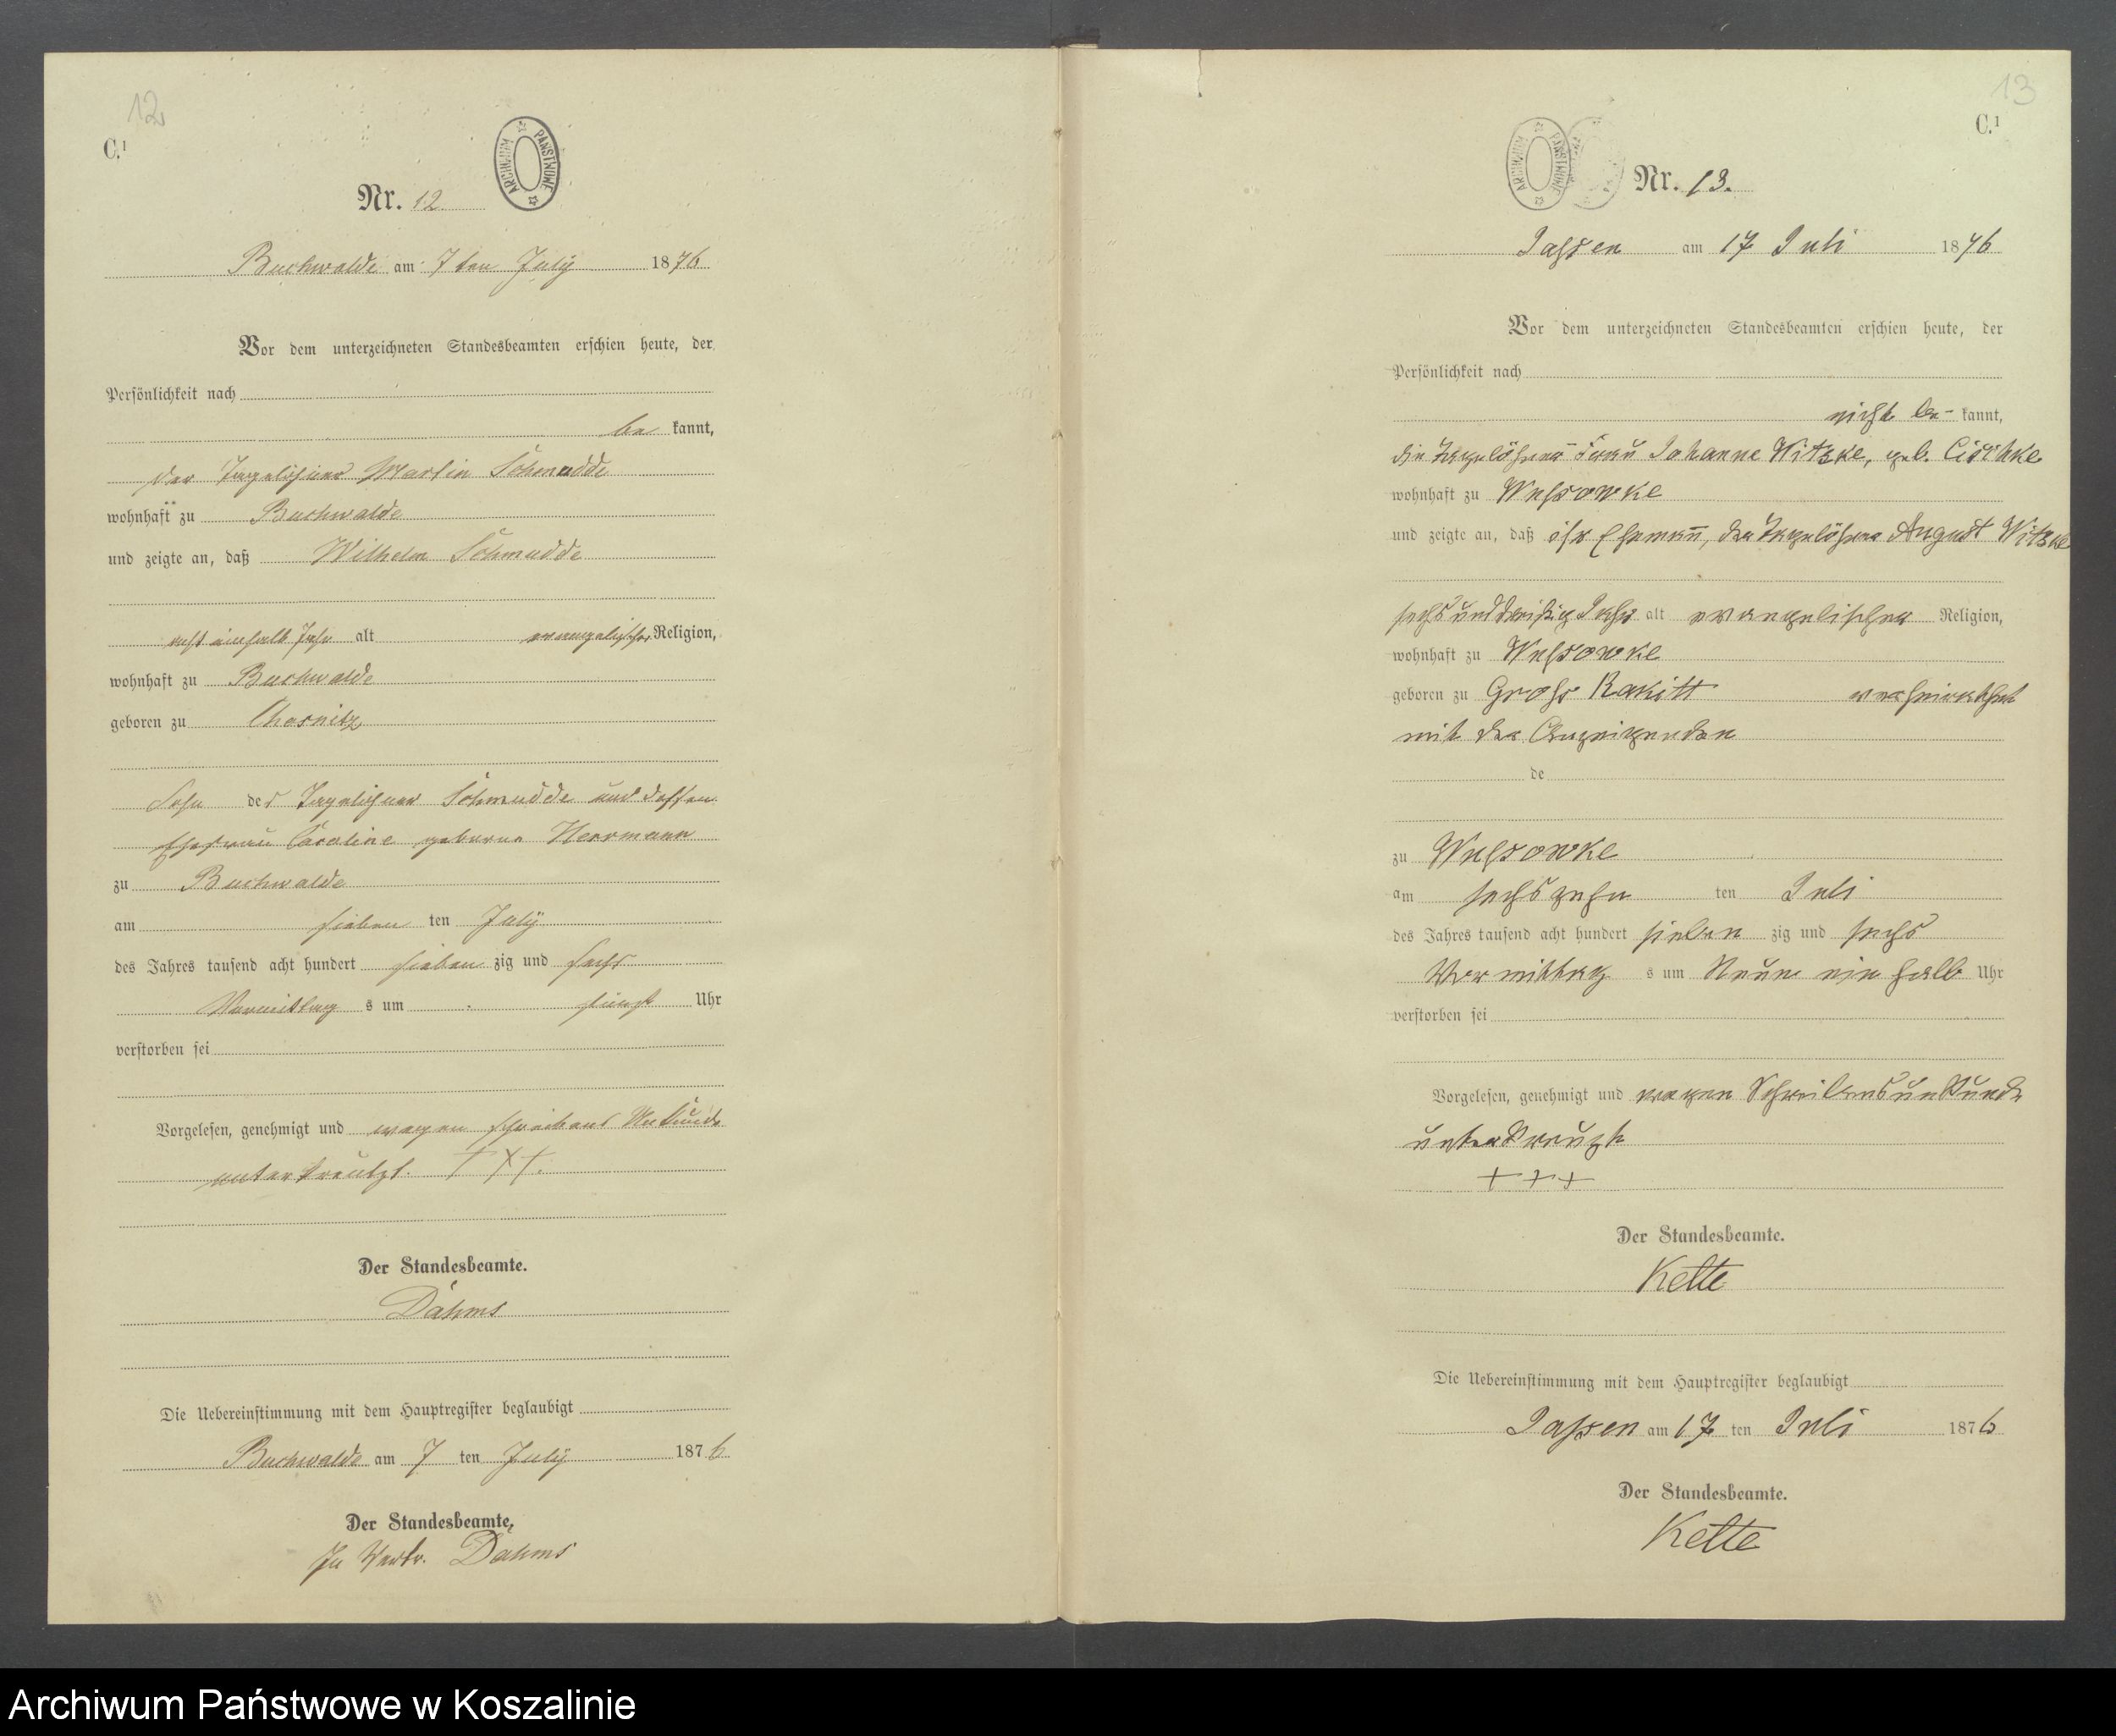 12
C.1
ARCHIWUM PAŃSTWOWE
Nr. 12
Buchwalde am 7ten July 1876
Vor dem unterzeichneten Standesbeamten erschien heute, der
Persönlichkeit nach
be kannt,
der Tagelöhner Martin Schmudde
wohnhaft zu Buchwalde
und zeigte an, daß Wilhelm Schmudde
einhalb Jahr alt evangelischer Religion,
wohnhaft zu Buchwalde
geboren zu
Sohn des Tagelöhner Schmudde und dessen
Ehefrau Caroline geborne Herrmann
zu Buchwalde
am sieben ten July
des Jahres tausend acht hundert sieben zig und sechs
Vormittag s um fünf Uhr
verstorben sei
Vorgelesen, genehmigt und wegen schreibens Unkunde
unterkreutzt. + + +.
Der Standesbeamte.
Dahms
Die Uebereinstimmung mit dem Hauptregister beglaubigt
Buchwalde am 7 ten July 1876
Der Standesbeamte.
In Vertr. Dahms
13
C.1
ARCHIWUM PAŃSTWOWE
Nr. 13.
Jassen am 17 Juli 1876
Vor dem unterzeichneten Standesbeamten erschien heute, der
Persönlichkeit nach
nicht be- kannt,
die Tagelöhner Frau Johanne Witzke, geb. Lischke
wohnhaft zu Wussowke
und zeigte an, daß ihr Ehemañ, der Tagelöhner August Witzke
sechsunddreißig Jahr alt evangelischer Religion,
wohnhaft zu Wussowke
geboren zu Gross Rakitt verheirathet
mit der Anzeigenden
de
zu Wussowke
am sechszehn ten Juli
des Jahres tausend acht hundert sieben zig und sechs
Vormittag s um Neun ein halb Uhr
verstorben sei
Vorgelesen, genehmigt und wegen Schreibensunkunde
unterkreuzt
+ + +
Der Standesbeamte.
Kette
Die Uebereinstimmung mit dem Hauptregister beglaubigt
Jassen am 17 ten Juli 1876
Der Standesbeamte.
Kette
Archiwum Państwowe w Koszalinie